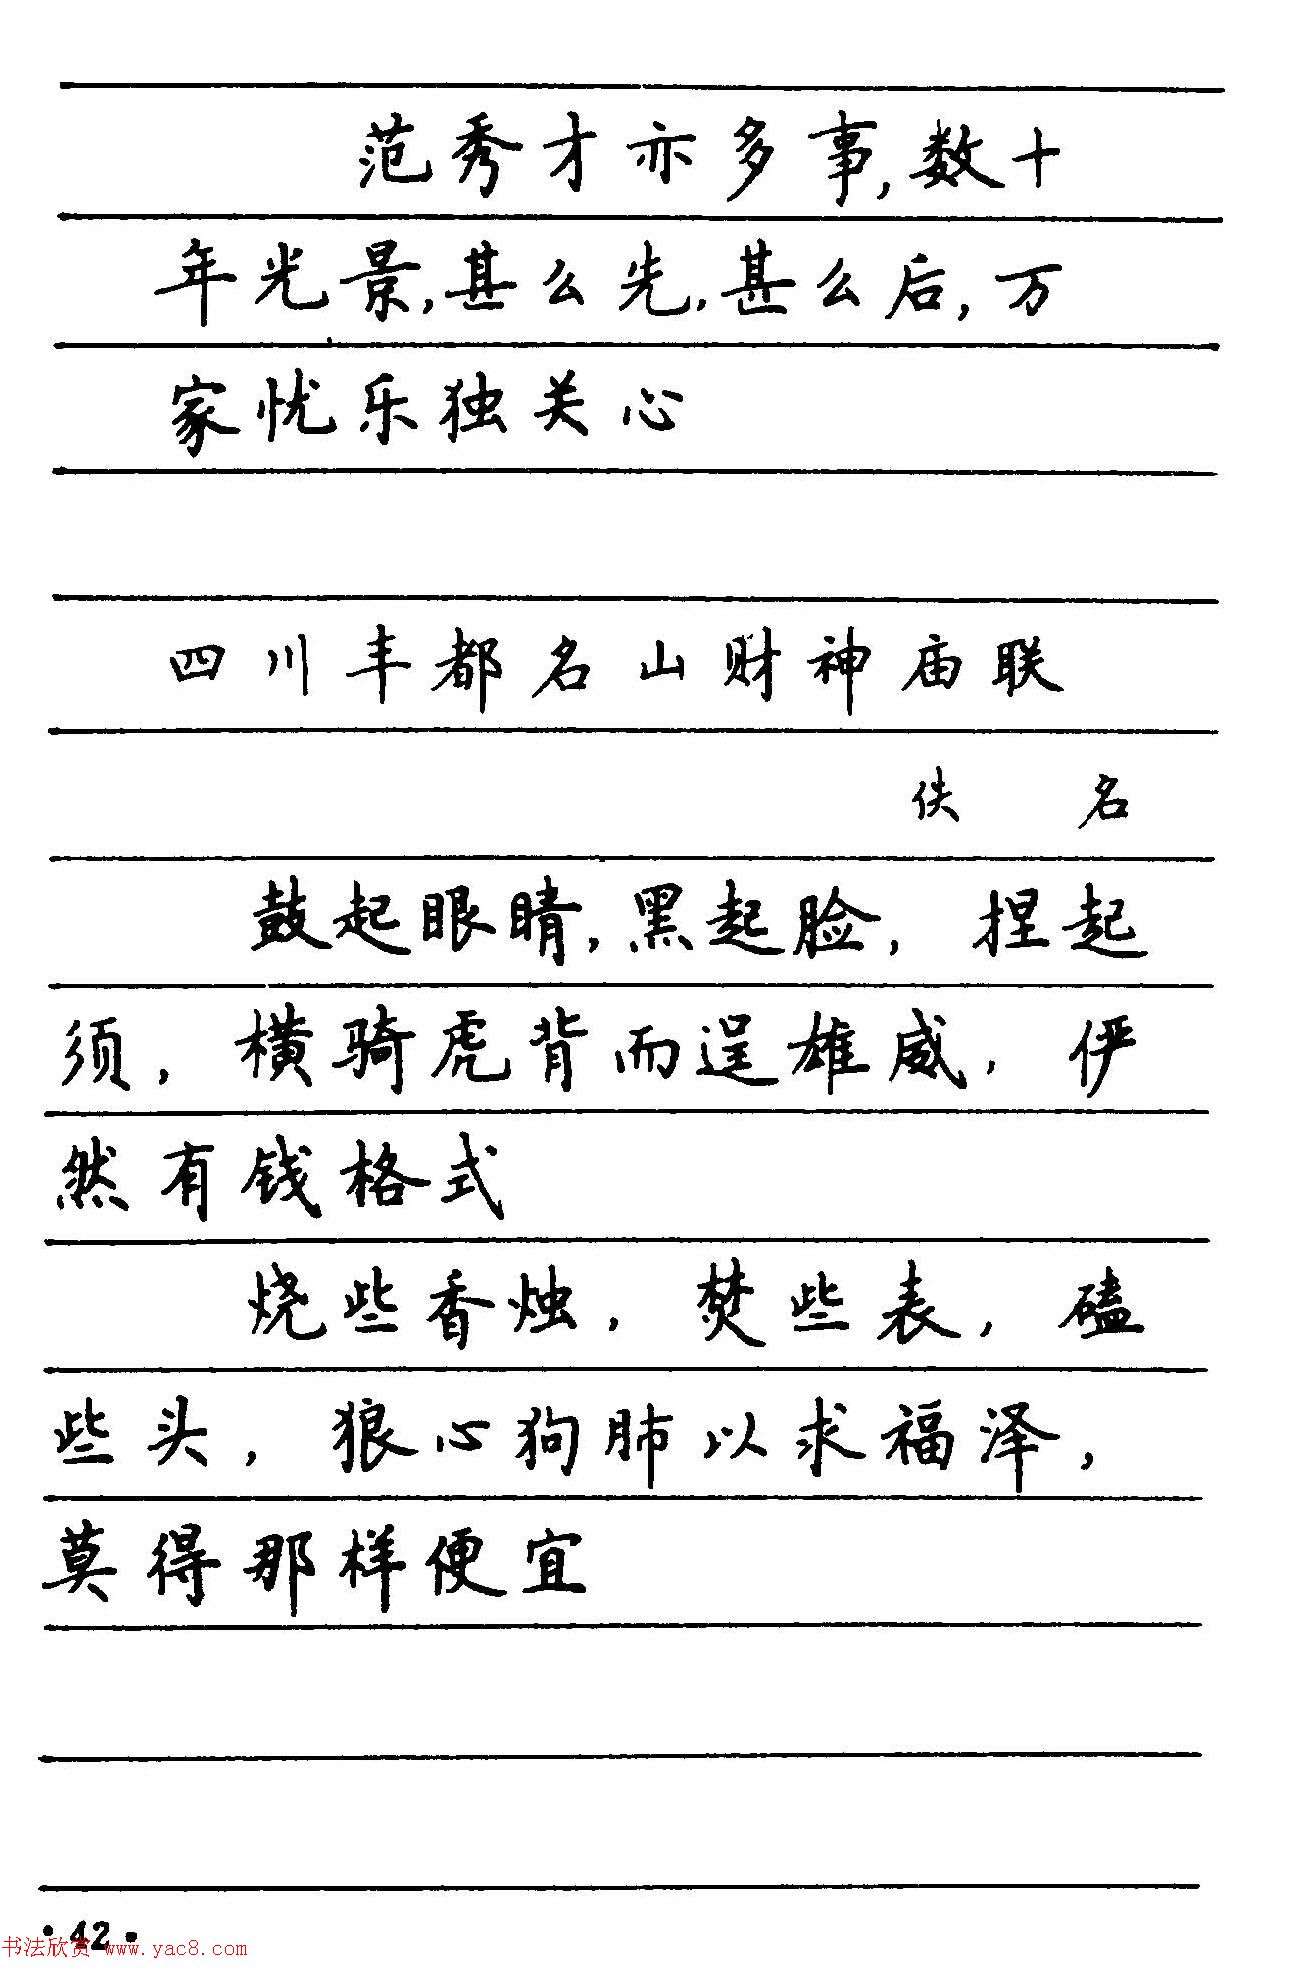 范秀才亦多事,数十
年光景,甚么先,甚么后,万
家忧乐独关心
四川丰都名山财神庙联
佚名
鼓起眼睛,黑起脸,捏起
须,横骑虎背而逞雄威,俨
然有钱格式
烧些香烛,焚些表,磕
些头,狼心狗肺以求福泽,
莫得那样便宜
·42·
书法欣赏 www.yac8.com